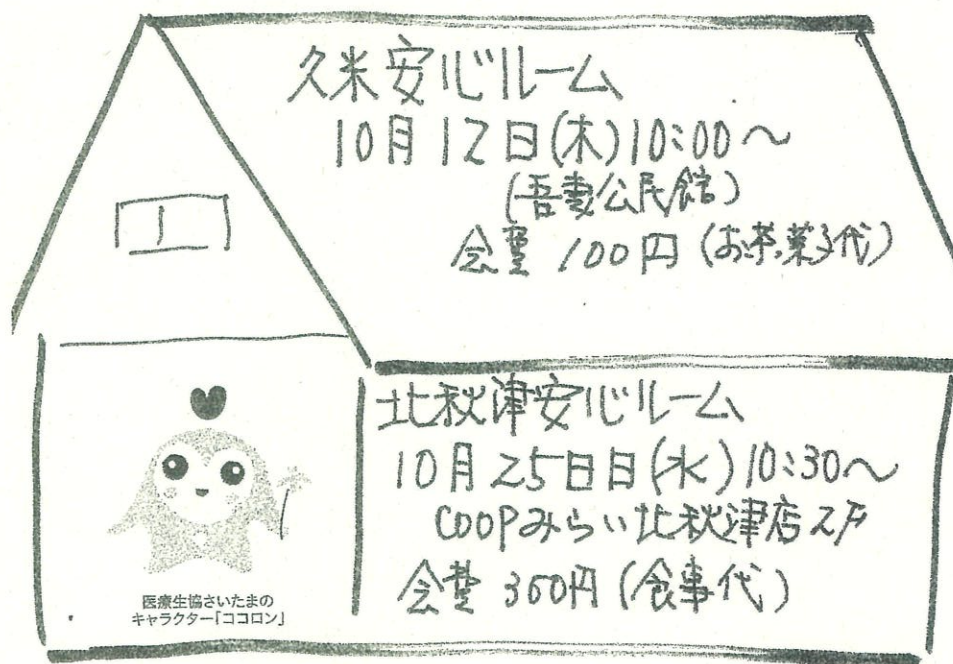 久米安心ルーム
10月12日(木)10:00〜
(吾妻公民館)
会費 100円(お茶菓子代)
北秋津安心ルーム
10月25日日(水)10:30〜
COOPみらい北秋津店2F
会費 350円(食事代)
医療生協さいたまの
キャラクター「ココロン」